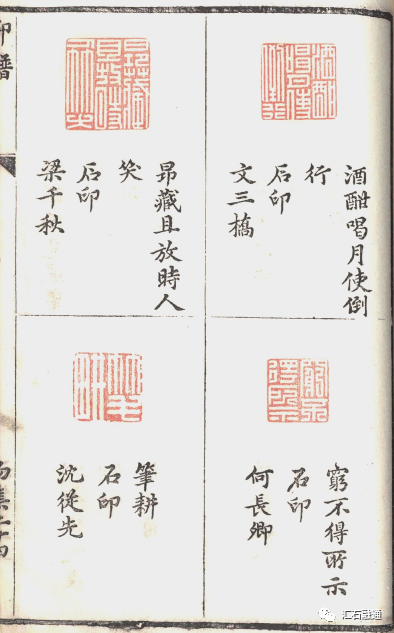 酒酣喝月使倒
行
石印
文三橋
昂藏且放時人
笑
石印
梁千秋
窮不得所示
石印
何長卿
筆耕
石印
沈從先
印譜
汇石融通